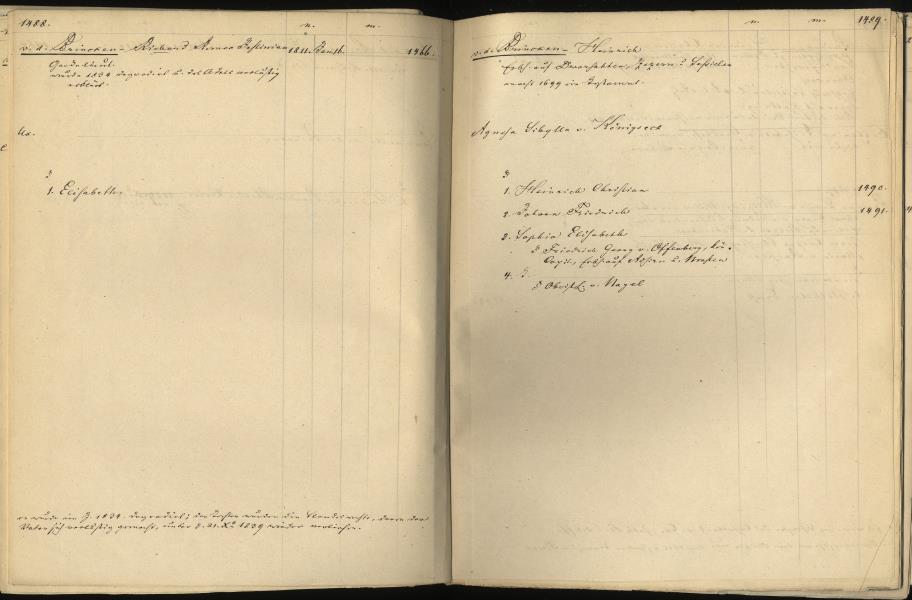 1488.
n. m.
v. d. Brincken - Richard Marco Justinian 1811. 1466.
Garde Lieut.
wurde 1834 degradirt u. des Adels verlustig
erklärt.
Ux.
1. Elisabeth.
er wurde im J. 1834 degradirt; der Tochter wurden die Standesrechte, deren der
Vater sich verlustig gemacht, unter d. 21. Xbr 1839 wieder verliehen.
n. m. 1489.
v. d. Brincken - Heinrich
Erbh. auf
macht 1699 ein Testament.
Agnesa Sibylla v. Königseck
1. Heinrich Christian 1490.
2. Johann Friedrich 1491.
3. Sophia Elisabeth
Friedrich Georg v. Offenberg,
Erbh. auf u.
4.
Christ. v. Nagel